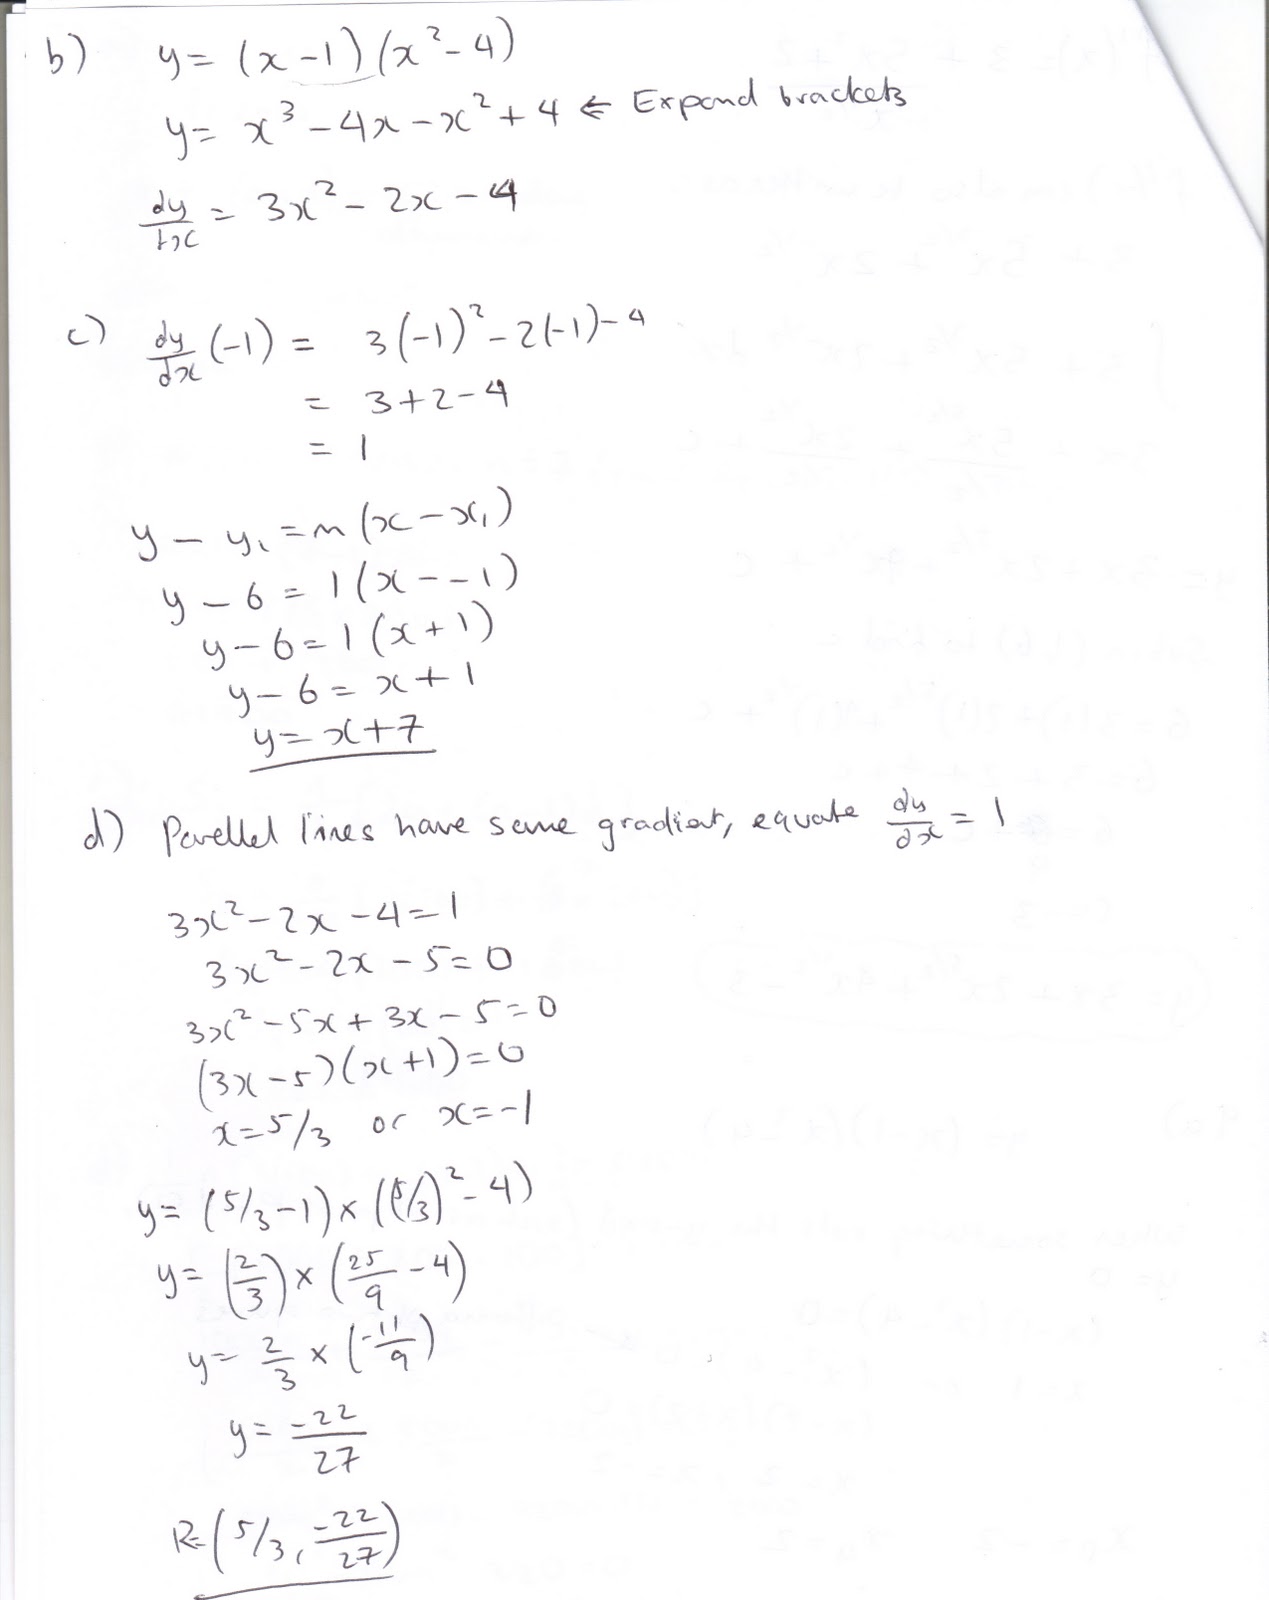 b) y = (x - 1)(x² - 4)
y = x³ - 4x - x² + 4 ⇐ Expand brackets
dy/dx = 3x² - 2x - 4
c) dy/dx (-1) = 3(-1)² - 2(-1) - 4
= 3 + 2 - 4
= 1
y - y₁ = m(x - x₁)
y - 6 = 1(x - - 1)
y - 6 = 1(x + 1)
y - 6 = x + 1
y = x + 7
d) Parellel lines have same gradient, equate dy/dx = 1
3x² - 2x - 4 = 1
3x² - 2x - 5 = 0
3x² - 5x + 3x - 5 = 0
(3x - 5)(x + 1) = 0
x = 5/3 or x = -1
y = (5/3 - 1) × ((5/3)² - 4)
y = (2/3) × (25/9 - 4)
y = 2/3 × (-11/9)
y = -22/27
R = (5/3, -22/27)